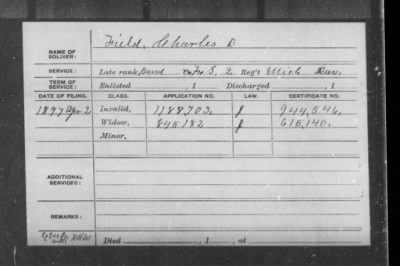 NAME OF SOLDIER: Field, Charles D
SERVICE: Late rank, Co. L, 2 Reg't Mich Cav.
TERM OF SERVICE: Enlisted , 1 Discharged , 1
DATE OF FILING. CLASS. APPLICATION NO. LAW. CERTIFICATE NO.
1897 Apr 2 Invalid, 1188703. J 944,546.
Widow, 845182 J 615,140.
Minor,
ADDITIONAL SERVICES:
REMARKS:
Died , 1 , at